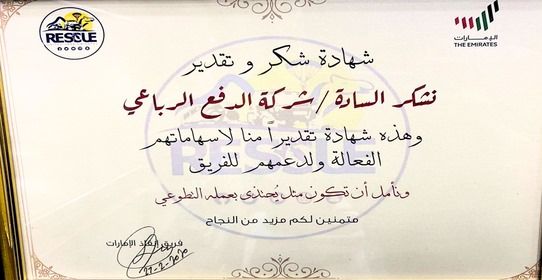 RESCUE
الإمارات
THE EMIRATES
شهادة شكر و تقدير
نشكر السادة / شركة الدفع الرباعي
وهذه شهادة تقديراً منا لاسهاماتهم
الفعالة ولدعمهم للفريق
ونأمل أن تكون مثل يُحتذى بعمله التطوعي
متمنين لكم مزيد من النجاح
فريق إنقاذ الإمارات
27-2-2020